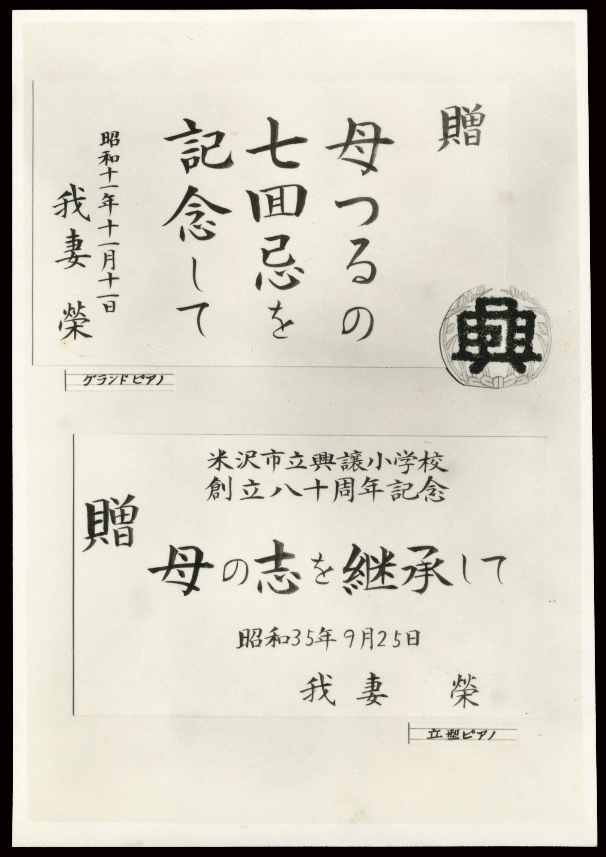 贈
母つるの
七回忌を
記念して
昭和十一年十一月十一日
我妻 榮
興
グランドピアノ
米沢市立興譲小学校
創立八十周年記念
贈
母の志を継承して
昭和35年9月25日
我妻 榮
立型ピアノ